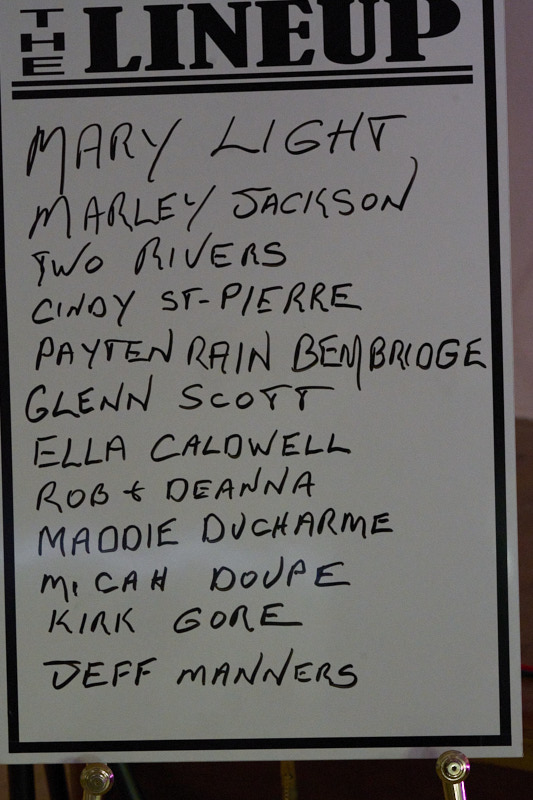 THE LINEUP
MARY LIGHT
MARLEY JACKSON
TWO RIVERS
CINDY ST-PIERRE
PAYTEN RAIN BEMBRIDGE
GLENN SCOTT
ELLA CALDWELL
ROB & DEANNA
MADDIE DUCHARME
MICAH DOUPE
KIRK GORE
JEFF MANNERS